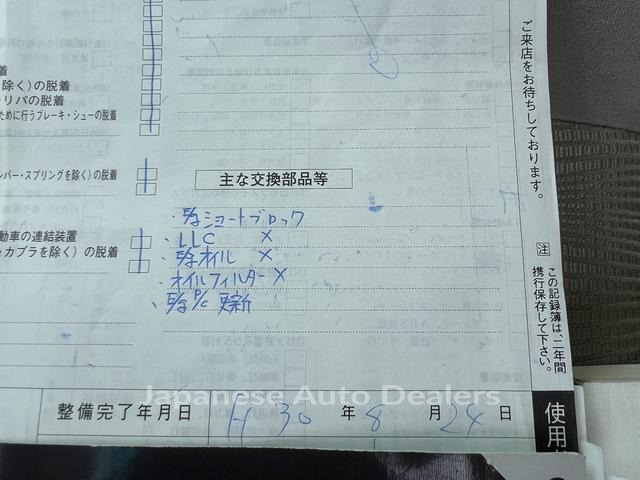 ご来店をお待ちしております。
除く)の脱着
リパの脱着
ために行うブレーキ・シューの脱着
ンパー・スプリングを除く)の脱着
主な交換部品等
・E/gショートブロック
動車の連結装置
・LLC ×
・カプラを除く)の脱着
・E/gオイル ×
・オイルフィルター×
・E/g P/C 更新
注 この記録簿は、二年間
携行保存して下さい。
Japanese Auto Dealers
整備完了年月日 H30 年 8 月 24 日
使用